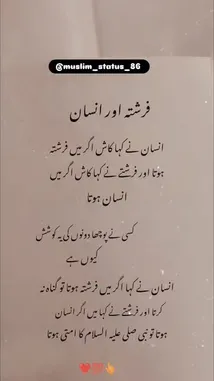 @muslim_status_86
فرشتہ اور انسان
انسان نے کہا کاش اگر میں فرشتہ
ہوتا اور فرشتے نے کہا کاش اگر میں
انسان ہوتا
کسی نے پوچھا دونوں کی یہ کوشش
کیوں ہے
انسان نے کہا اگر میں فرشتہ ہوتا تو گناہ نہ
کرتا اور فرشتے نے کہا میں اگر انسان
ہوتا تو نبی صلی علیہ السلام کا امتی ہوتا